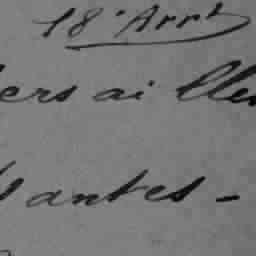 18e Arrt
ersailles
antes -